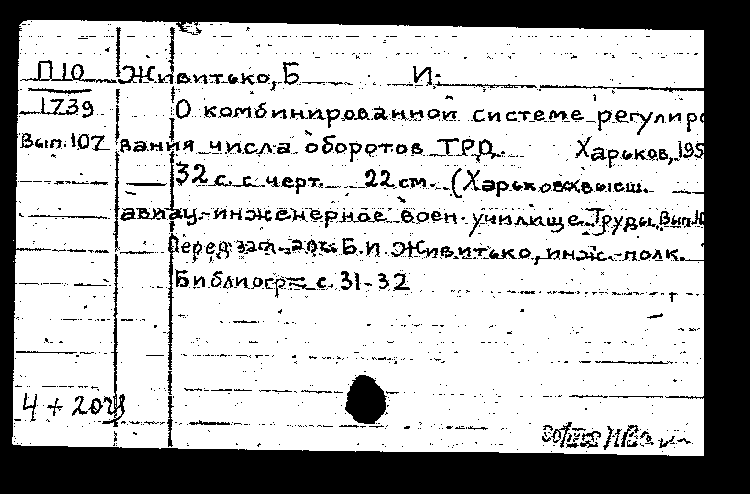 П 10 Живитько, Б И.
1739 О комбинированной системе регулиро
Вып. 107 вания числа оборотов ТРД. Харьков, 195
— 32 с. с черт. 22 см. (Харьковск высш.
авиац.-инженерное воен. училище. Труды. Вып. 10
Перед загл. авт: Б.И Живитько, инж.-полк.
Библиогр= с. 31-32
4 +